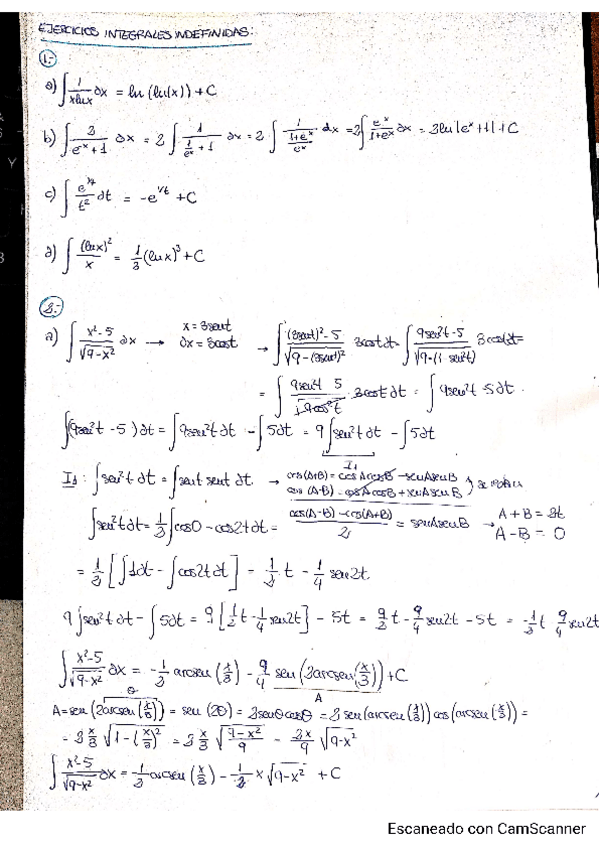 EJERCICIOS INTEGRALES INDEFINIDAS:
1.-
a) ∫ 1/(x lnx) ∂x = ln (ln(x)) + C
b) ∫ 2/(e^x + 1) ∂x = 2 ∫ 1/(1/e^x + 1) ∂x = 2 ∫ 1/((1+e^x)/e^x) dx = 2 ∫ e^x/(1+e^x) ∂x = 2 ln|e^x + 1| + C
c) ∫ e^(1/t)/t² ∂t = -e^(1/t) + C
d) ∫ (lnx)²/x = 1/3 (lnx)³ + C
2.-
a) ∫ (x²-5)/√(9-x²) ∂x → x = 3sent → ∫ ((3sent)²-5)/√(9-(3sent)²) 3cost ∂t = ∫ (9sen²t-5)/√(9·(1-sen²t)) 3cost ∂t =
∂x = 3cost
= ∫ (9sen²t-5)/√(9cos²t) 3cost ∂t = ∫ 9sen²t-5∂t.
∫(9sen²t-5)∂t = ∫9sen²t∂t - ∫5∂t = 9∫sen²t∂t - ∫5∂t
I₁
I₁: ∫sen²t ∂t = ∫sent sent ∂t. → cos(A+B) = cosAcosB - senAsenB
cos(A-B) = cosAcosB + senAsenB
∫sen²t∂t = 1/2 ∫cos0 - cos2t∂t = (cos(A-B) - cos(A+B))/2 = senAsenB → A+B = 2t
A-B = 0
= 1/2 [∫1∂t - ∫cos2t∂t] = 1/2 t - 1/4 sen2t.
9∫sen²t∂t - ∫5∂t = 9[1/2 t - 1/4 sen2t] - 5t = 9/2 t - 9/4 sen2t - 5t = -1/2 t 9/4 sen2t
∫ (x²-5)/√(9-x²) ∂x = -1/2 arcsen(x/3) - 9/4 sen(2arcsen(x/3)) + C
θ A
A = sen(2arcsen(x/3)) = sen(2θ) = 2senθcosθ = 2 sen(arcsen(x/3)) cos(arcsen(x/3)) =
= 2 x/3 √(1-(x/3)²) = 2 x/3 √((9-x²)/9) = 2x/9 √(9-x²)
∫ (x²-5)/√(9-x²) ∂x = -1/2 arcsen(x/3) - 1/2 x√(9-x²) + C
Escaneado con CamScanner